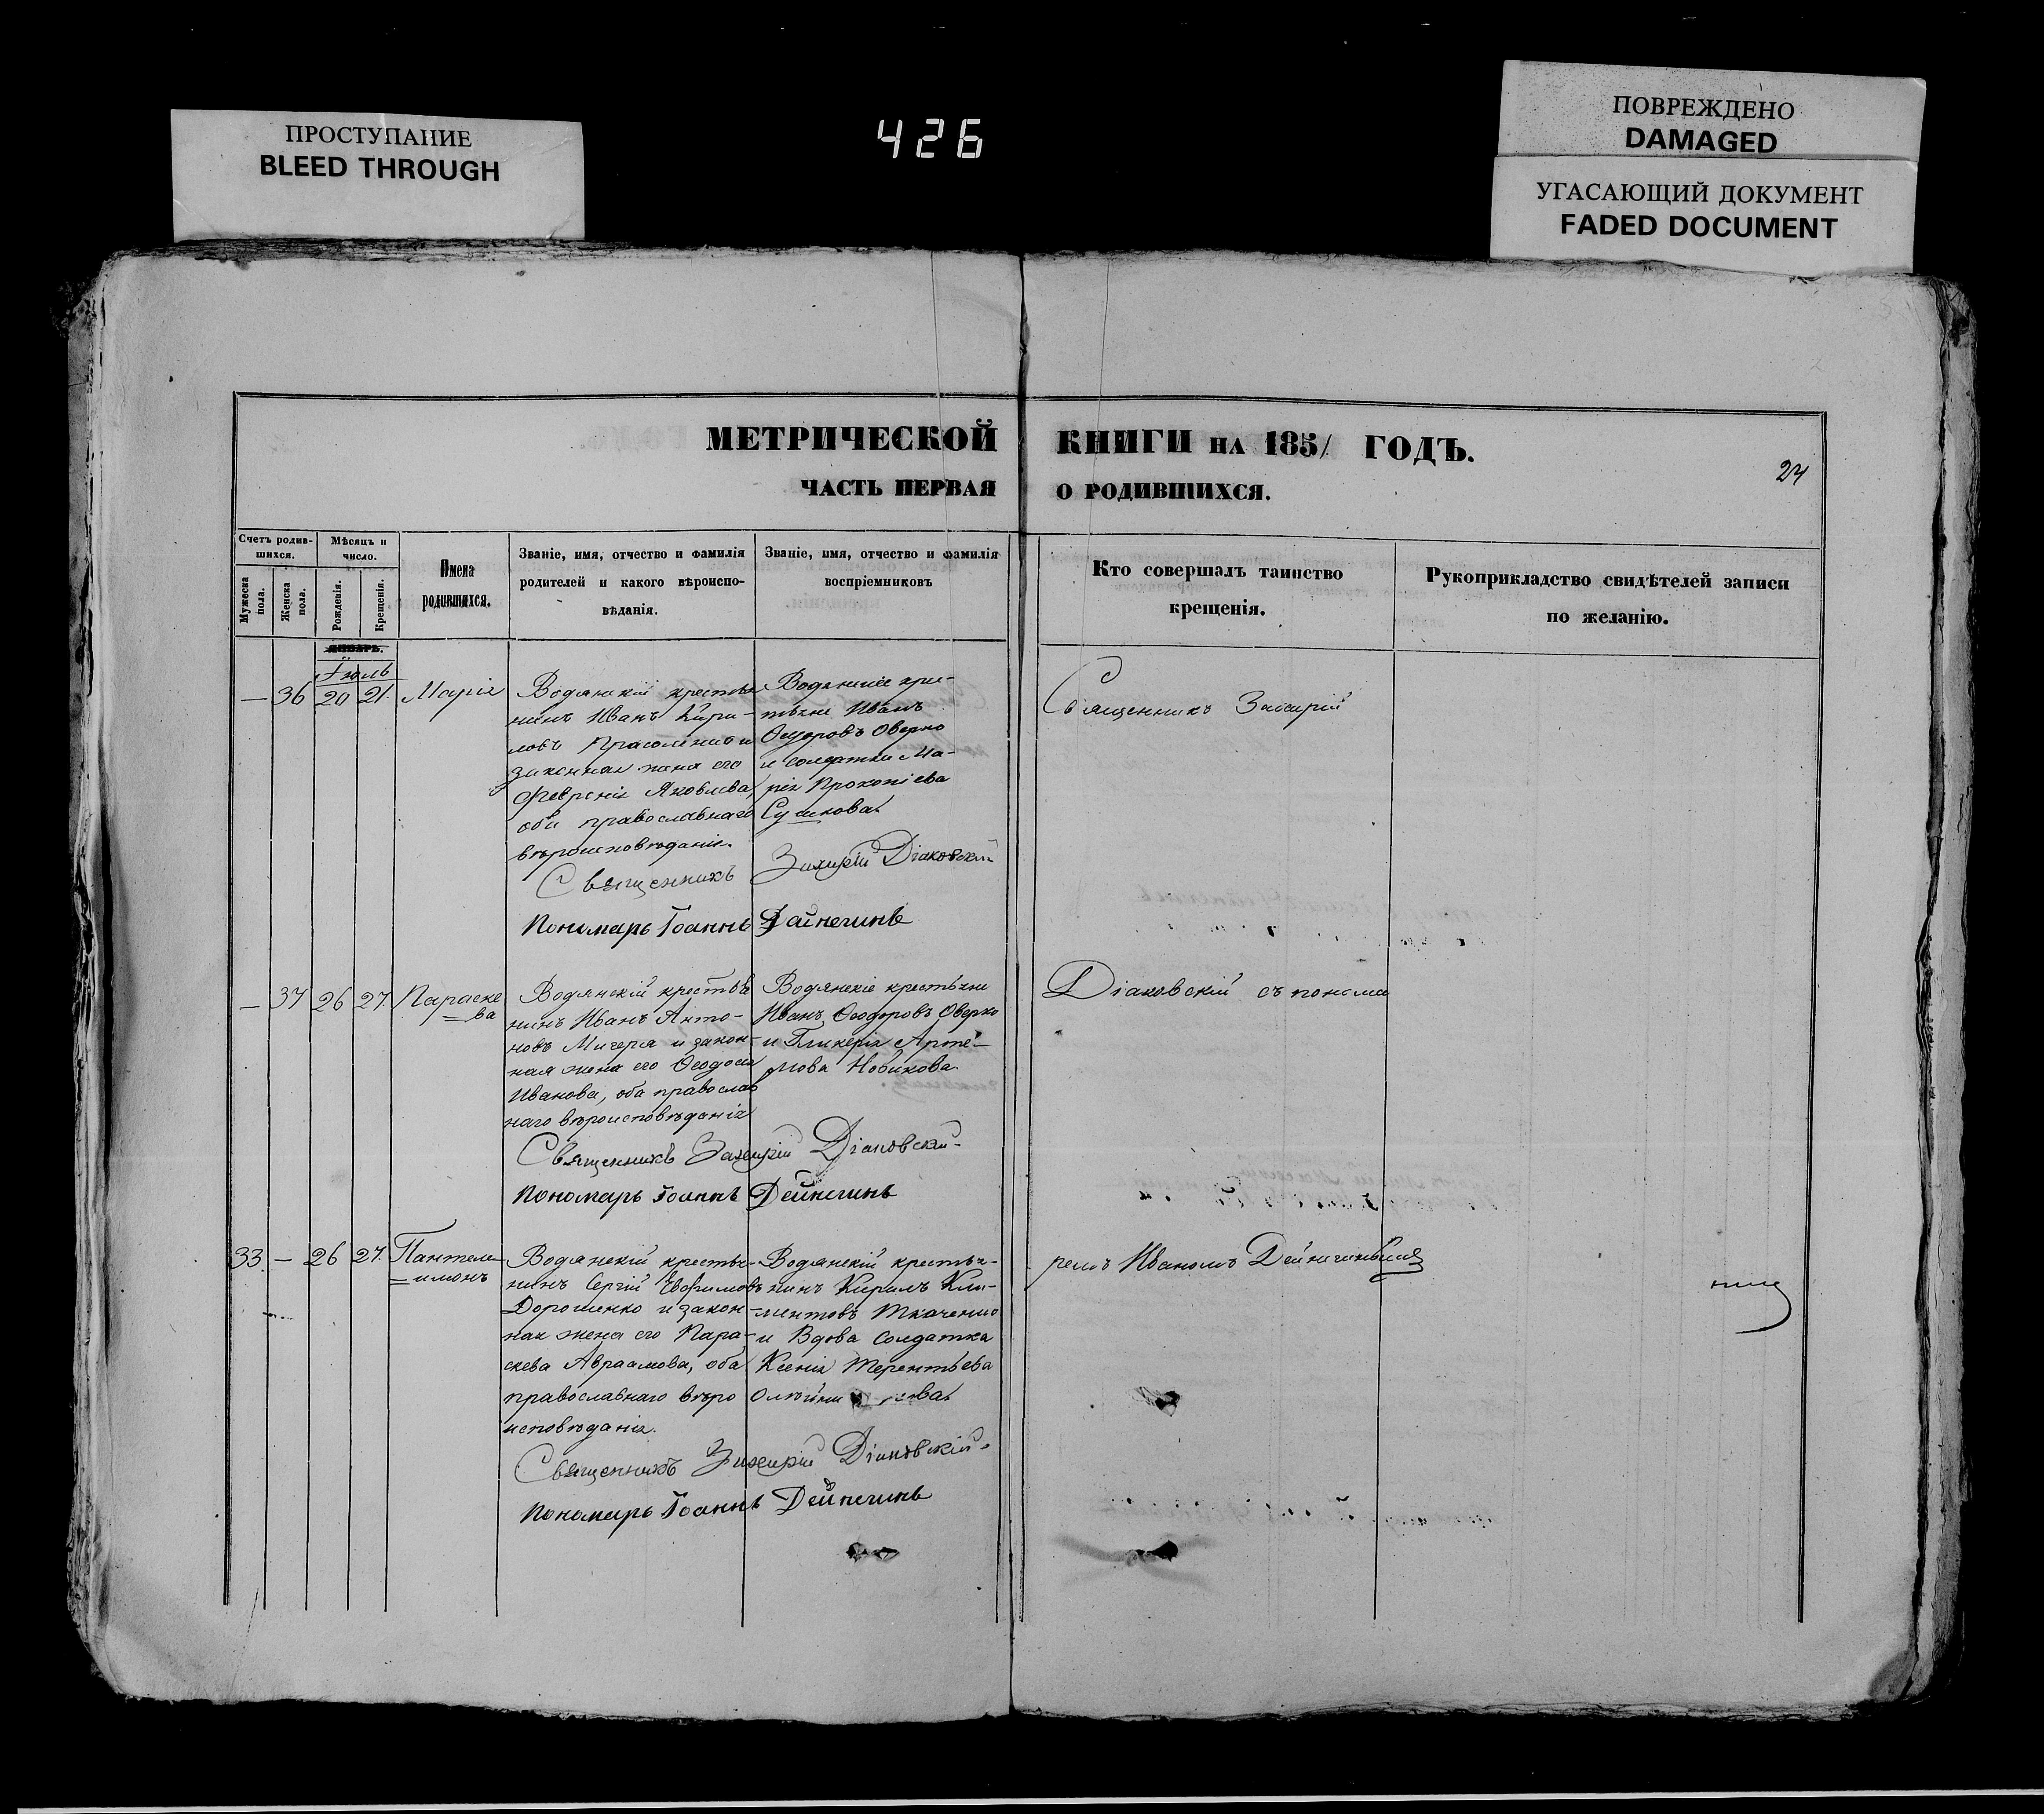 ПРОСТУПАНИЕ
BLEED THROUGH
426
ПОВРЕЖДЕНО
DAMAGED
УГАСАЮЩИЙ ДОКУМЕНТ
FADED DOCUMENT
МЕТРИЧЕСКОЙ КНИГИ НА 1851 ГОДЪ.
24
ЧАСТЬ ПЕРВАЯ О РОДИВШИХСЯ.
Счетъ родив-
шихся.
Мужеска
пола.
Женска
пола.
Мѣсяцъ и
число.
Рожденія.
Крещенія.
Имена
родившихся.
Званіе, имя, отчество и фамилія
родителей и какого вѣроиспо-
вѣданія.
Званіе, имя, отчество и фамилія
воспріемниковъ
Кто совершалъ таинство
крещенія.
Рукоприкладство свидѣтелей записи
по желанію.
ЯНВАРЬ.
Іюль
— 36 20 21. Марія
Водянскій крестья
нинъ Иванъ Кири-
ловъ и
законная жена его
Февронія Яковлева,
оба православнаго
вѣроисповѣданія.
Водянскіе кре-
стьяне Иванъ
Ѳедоровъ Оверко
и солдатка Ма-
рія Прокопіева
Священникъ Захарій Діаковскій
Пономарь Іоаннъ Дейнегинъ
Священникъ Захарій
— 37 26 27. Параске
ва
Водянскій крестья
нинъ Иванъ Анто-
новъ Мигеря и закон-
ная жена его Ѳеодосія
Иванова, оба православ
наго вѣроисповѣданія
Водянскіе крестьяне
Иванъ Ѳеодоровъ Оверко
и Гликерія Артё-
мова Новикова.
Священникъ Захарій Діаковскій
Пономарь Іоаннъ Дейнегинъ
Діаковскій съ понома
33. — 26 27. Пантеле
имонъ
Водянскій крестья-
нинъ Сергій Евфимовъ
Дорошенко и закон-
ная жена его Пара-
скева Авраамова, оба
православнаго вѣро
исповѣданія.
Водянскій крестья-
нинъ Кирилъ Кли-
ментовъ Ткаченко
и Вдова Солдатка
Ксенія Терентьева
Священникъ Захарій Діаковскій
Пономарь Іоаннъ Дейнегинъ
ремъ Иваномъ Дейнегинымъ